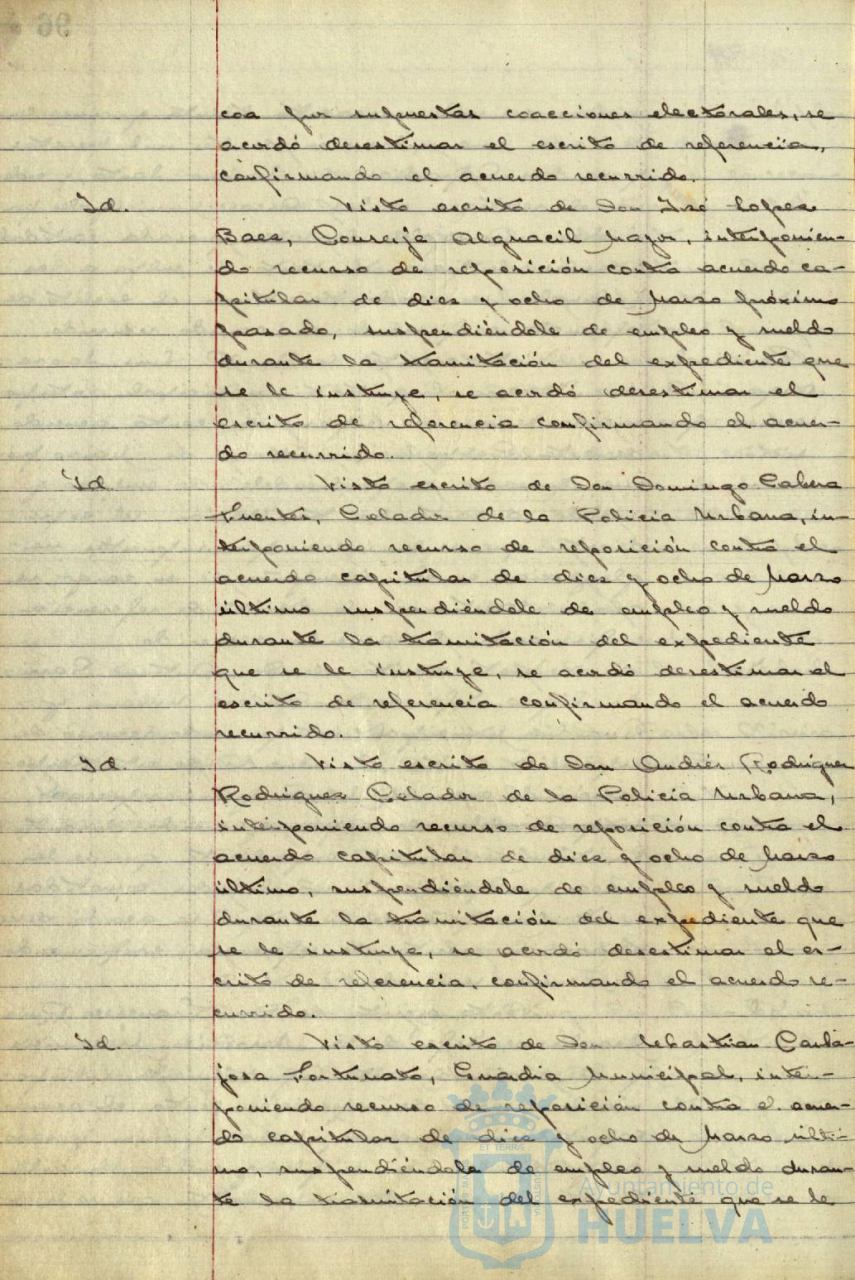 coa por supuestas coacciones electorales, se
acordó desestimar el escrito de referencia,
confirmando el acuerdo recurrido.
Id. Visto escrito de Don José Lopez
Baez, Conserje Alguacil Mayor, interponien-
do recurso de reposición contra acuerdo ca-
pitular de diez y ocho de Marzo próximo
pasado, suspendiéndole de empleo y sueldo
durante la tramitación del expediente que
se le instruye, se acordó desestimar el
escrito de referencia confirmando el acuer-
do recurrido.
Id. Visto escrito de Don Domingo Cabera
Fuentes, Celador de la Policia Urbana, in-
terponiendo recurso de reposición contra el
acuerdo capitular de diez y ocho de Marzo
último suspendiéndole de empleo y sueldo
durante la tramitación del expediente
que se le instruye, se acordó desestimar el
escrito de referencia confirmando el acuerdo
recurrido.
Id. Visto escrito de Don Andrés Rodriguez
Rodriguez Celador de la Policia Urbana,
interponiendo recurso de reposición contra el
acuerdo capitular de diez y ocho de Marzo
último, suspendiéndole de empleo y sueldo
durante la tramitación del expediente que
se le instruye, se acordó desestimar el es-
crito de referencia, confirmando el acuerdo re-
currido.
Id. Visto escrito de Don Sebastian Carba-
josa Fortunato, Guardia Municipal, inter-
poniendo recurso de reposición contra el acuer-
do capitular de diez y ocho de Marzo últi-
mo, suspendiéndole de empleo y sueldo duran-
te la tramitación del expediente que se le
Ayuntamiento de
HUELVA